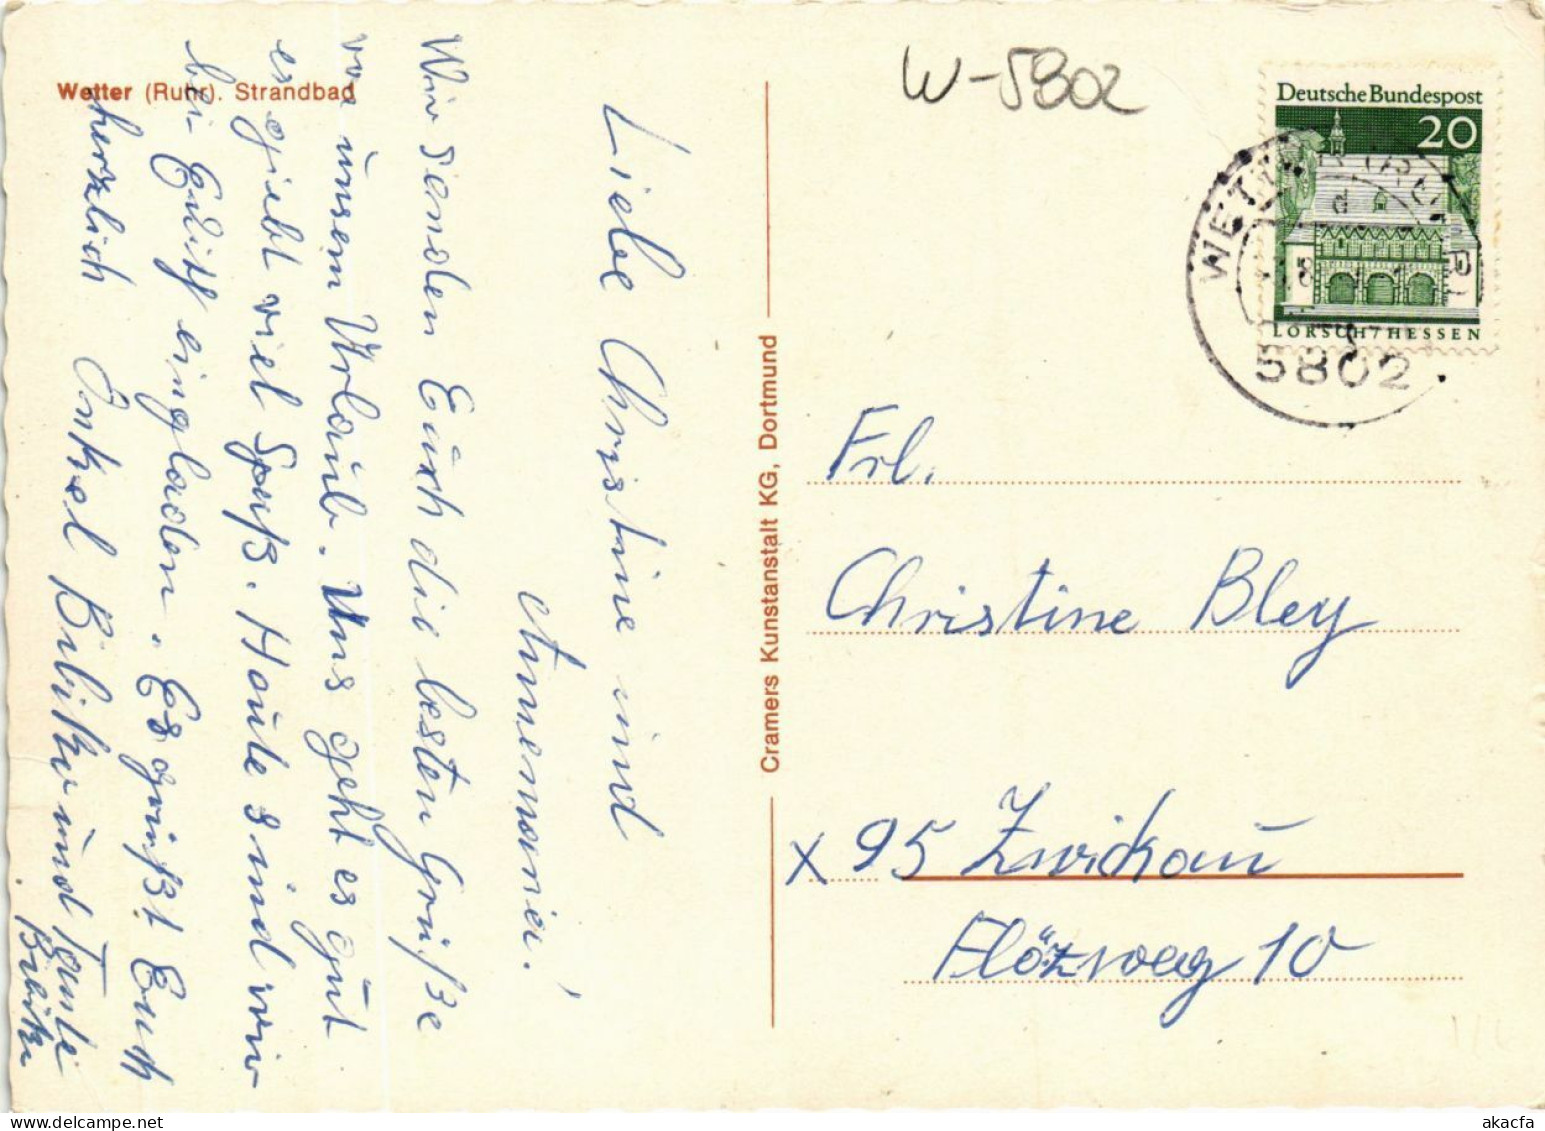 Wetter (Ruhr). Strandbad
Liebe Christine und
Annemarie!
Wir senden Euch die besten Grüße
von unsem Urlaub. Uns geht es gut
es giebt viel Spaß. Heute sind wir
bei Edith eingladen. Es grüßt Euch
herzlich Onkel und Tante
Cramers Kunstanstalt KG, Dortmund
W-5802
Deutsche Bundespost
20
LORSCH/HESSEN
WETTER
d
5802
Frl.
Christine Bley
X 95 Zwickau
Flözweg 10
akacfa.com